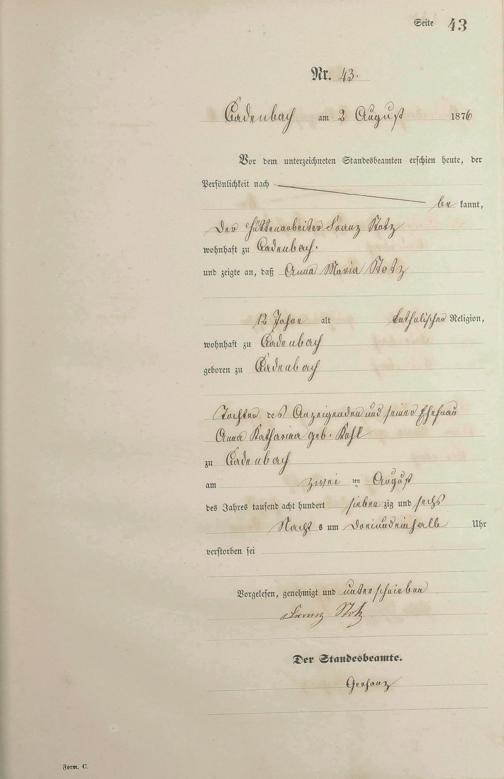 Seite 43
Nr. 43.
Cadenbach am 2 August 1876
Vor dem unterzeichneten Standesbeamten erschien heute, der
Persönlichkeit nach
be kannt,
der Hüttenarbeiter Franz Stotz
wohnhaft zu Cadenbach.
und zeigte an, daß Anna Maria Stotz
12 Jahre alt katholischer Religion,
wohnhaft zu Cadenbach
geboren zu Cadenbach
Tochter des Anzeigenden und seiner Ehefrau
Anna Katharina geb.
zu Cadenbach
am zwei ten August
des Jahres tausend acht hundert sieben zig und sechs
Nacht s um Uhr
verstorben sei
Vorgelesen, genehmigt und unterschrieben
Franz Stotz
Der Standesbeamte.
Form. C.